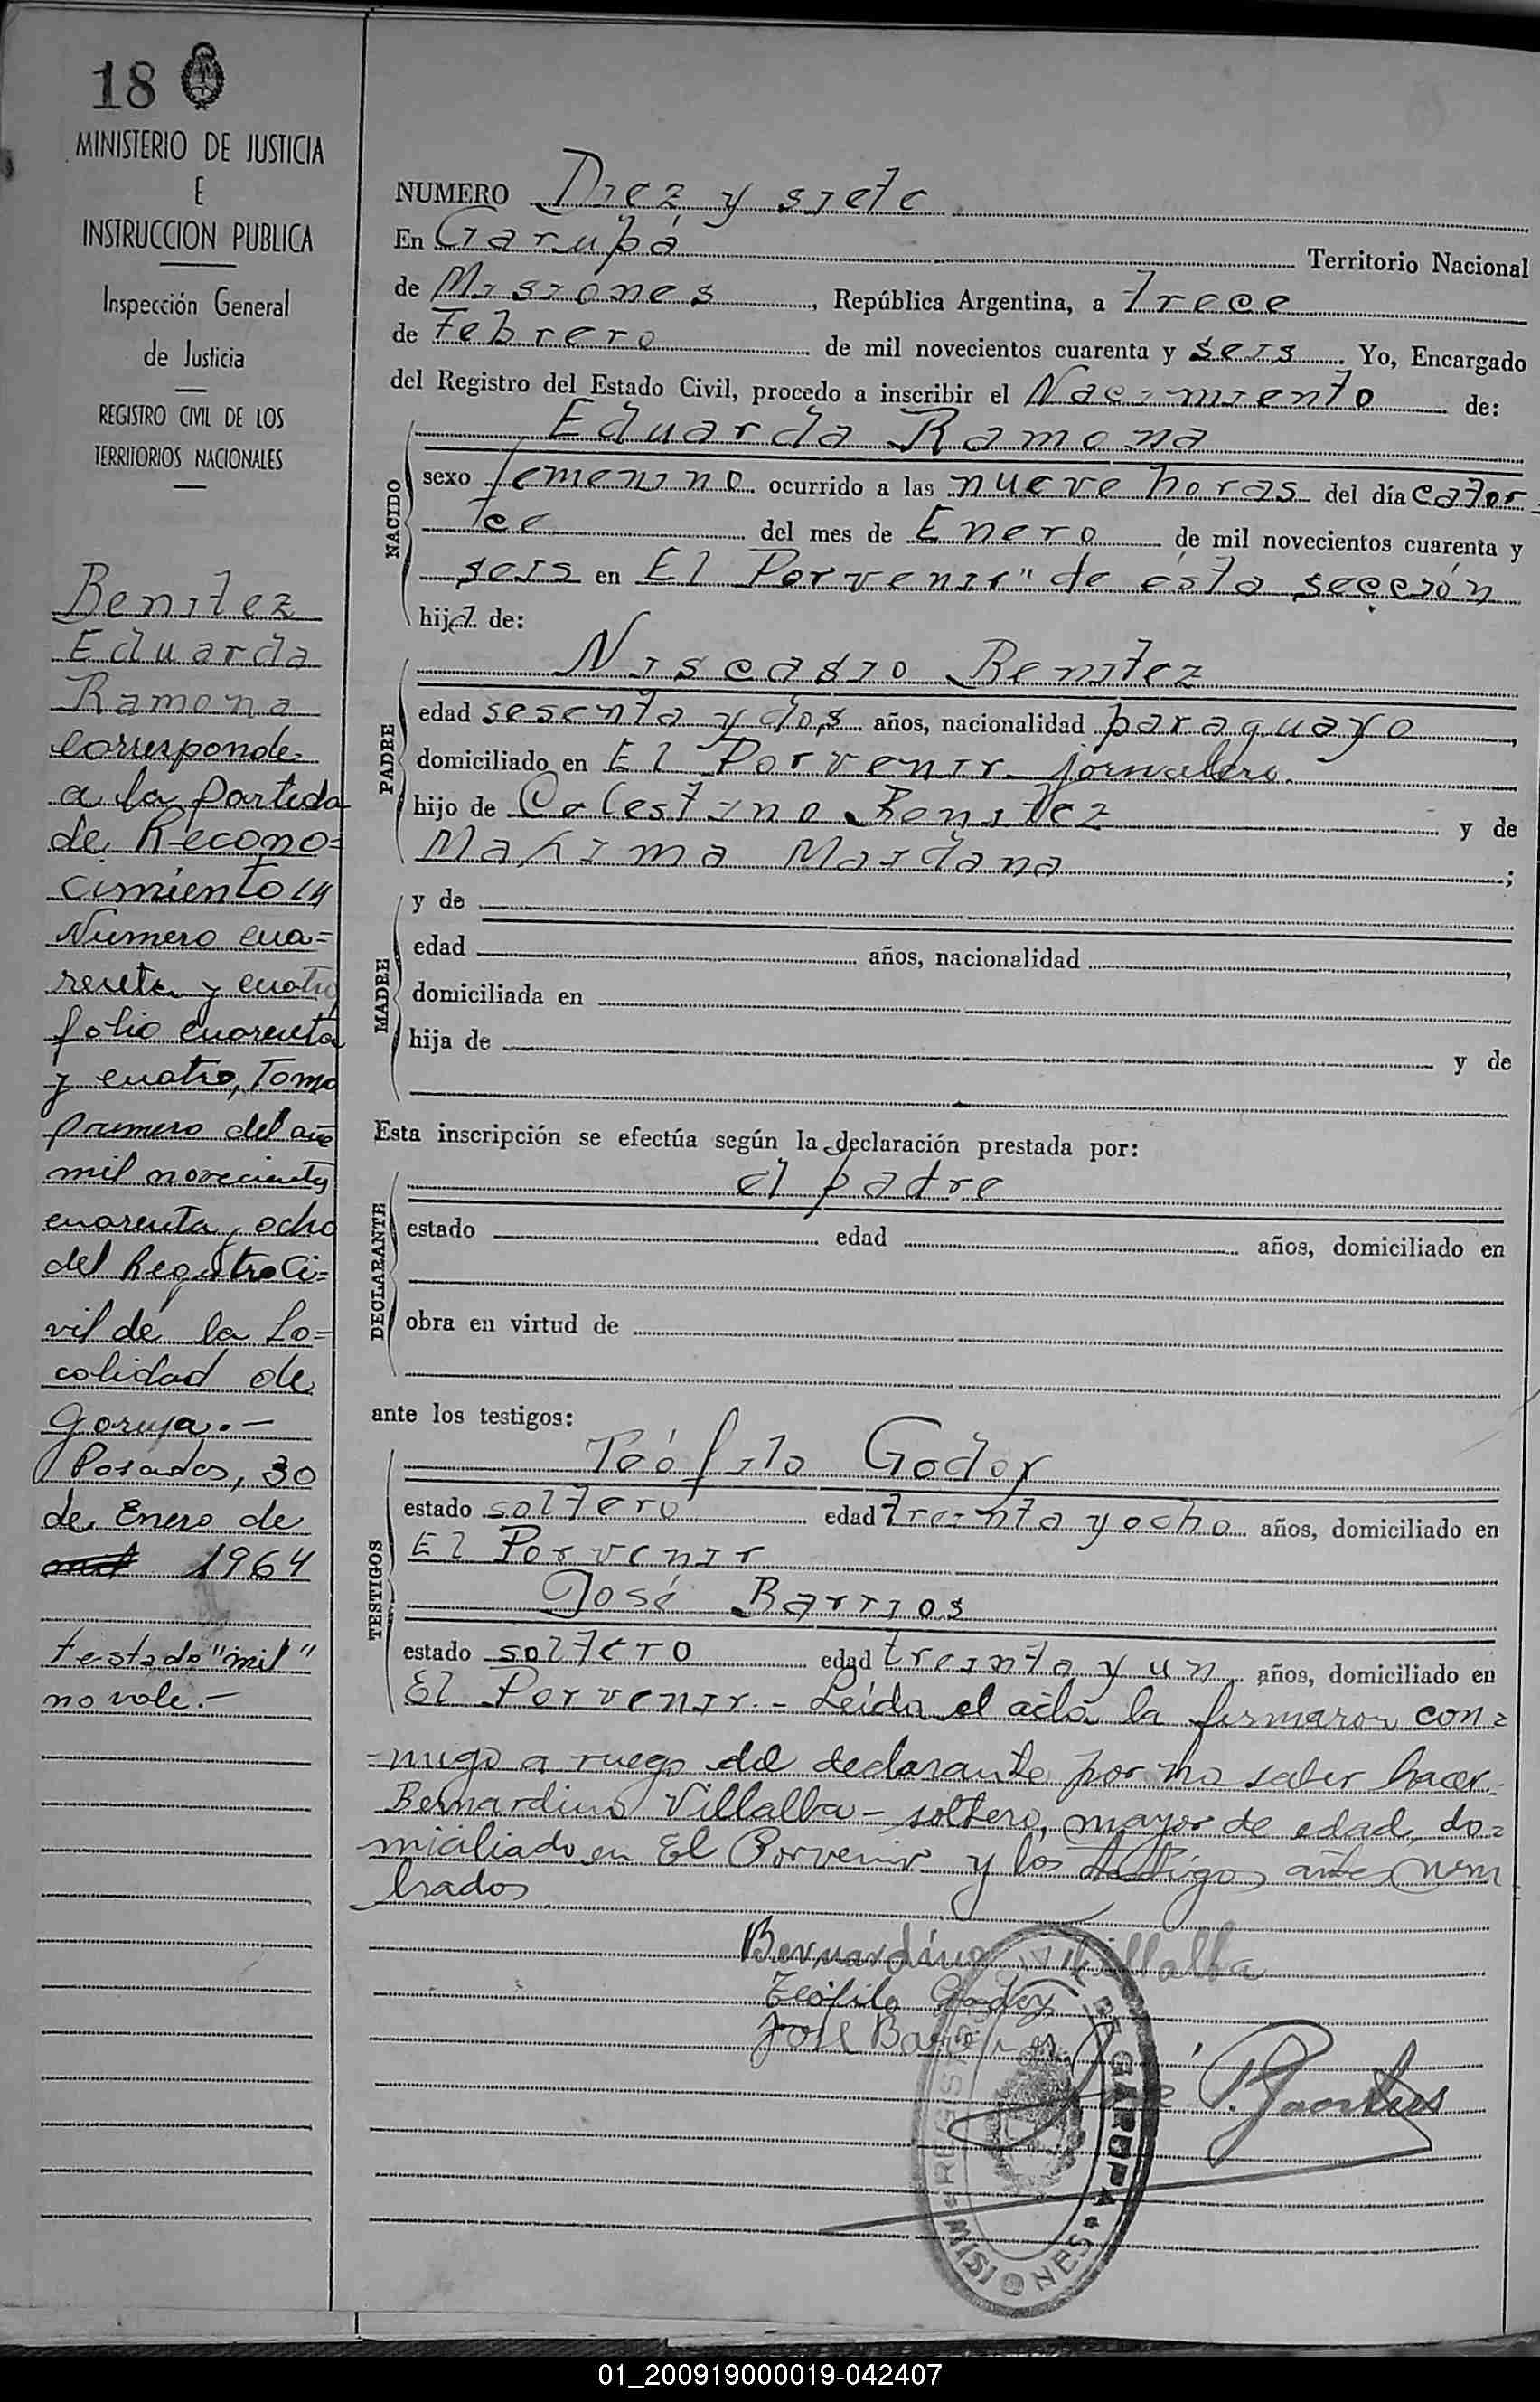 18
MINISTERIO DE JUSTICIA
E
INSTRUCCION PUBLICA
Inspección General
de Justicia
REGISTRO CIVIL DE LOS
TERRITORIOS NACIONALES
Benitez
Eduarda
Ramona
corresponde
a la partida
de Recono=
cimiento
Numero cua=
renta y cuatro
folio cuarenta
y cuatro, Tomo
primero del año
mil novecientos
cuarenta y ocho
del Registro Ci=
vil de la Lo=
calidad de
Garupa.—
Posadas, 30
de Enero de
mil 1964
testado "mil"
no vale.—
NUMERO Diez y siete
En Garupá Territorio Nacional
de Misiones, República Argentina, a trece
de Febrero de mil novecientos cuarenta y seis. Yo, Encargado
del Registro del Estado Civil, procedo a inscribir el Nacimiento de:
NACIDO
Eduarda Ramona
sexo femenino ocurrido a las nueve horas del día cator-
ce del mes de Enero de mil novecientos cuarenta y
seis en El Porvenir" de ésta sección
hija de:
PADRE
Niscasio Benitez
edad sesenta y dos años, nacionalidad paraguayo,
domiciliado en El Porvenir jornalero.
hijo de Celestino Benitez y de
Maxima Maidana;
MADRE
y de
edad años, nacionalidad,
domiciliada en
hija de y de
Esta inscripción se efectúa según la declaración prestada por:
DECLARANTE
el padre
estado edad años, domiciliado en
obra en virtud de
ante los testigos:
TESTIGOS
Teófilo Godoy
estado soltero edad treinta y ocho años, domiciliado en
El Porvenir
José Barrios
estado soltero edad treinta y un años, domiciliado en
El Porvenir.- Leida el acta la firmaron con=
-migo a ruego del declarante por no saber hacer
Bernardino Villalba - soltero, mayor de edad, do=
miciliado en El Porvenir y los testigos antes nom=
brados
Bernardino Villalba
Teófilo Godoy
José Barrios
REGISTRO CIVIL DE GARUPA
MISIONES
01_200919000019-042407